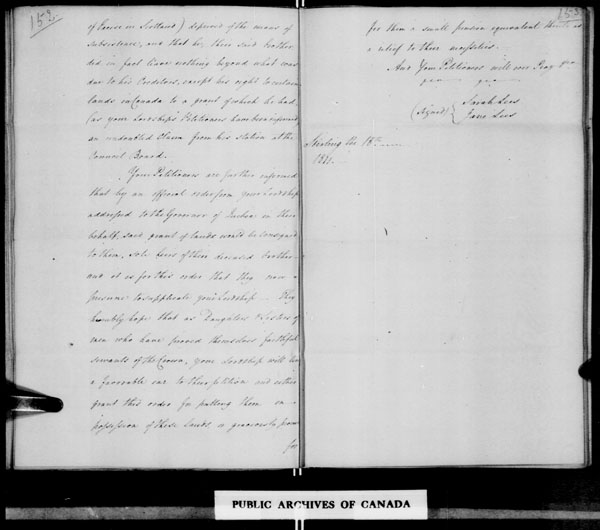 153.
of Excise in Scotland) deprived of the means of
subsistence, and that he, their said Brother
did in fact leave nothing beyond what was
due to his Creditors, except his right to certain
lands in Canada to a grant of which he had
(as your Lordship's Petitioners have been informed
an undoubted Claim from his station at the
Council Board.
Your Petitioners are further informed
that by an official order from your Lordship
addressed to the Governor of Quebec in their
behalf, said grant of lands would be consigned
to them, sole heirs of their deceased Brother
and it is for this order that they now
presume to supplicate your Lordship — They
humbly hope that as Daughters & Sisters of
men who have proved themselves faithful
servants of the Crown, your Lordship will lend
a favorable ear to their petition and either
grant this order for putting them in
possession of these lands or graciously procure
for
153
for them a small pension equivalent thereto as
a relief to their necessities.
And Your Petitioners will ever Pray &ca
(Signed) { Sarah Lees
Jane Lees
Stirling the 18th
1821.
PUBLIC ARCHIVES OF CANADA